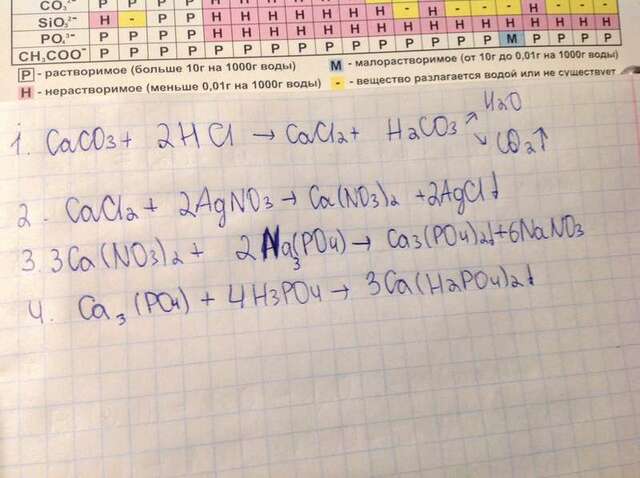 CO₃²⁻ Р Р Р Р Н Н Н Н Н Н Н - Н - - Н - -
SiO₃²⁻ Н - Р Р Н Н Н Н Н Н Н - Н - - Н - -
PO₄³⁻ Р Р Р Р Н Н Н Н Н Н Н Н Н Н Н Н Н Н
CH₃COO⁻ Р Р Р Р Р Р Р Р Р Р Р Р М Р Р Р Р
Р - растворимое (больше 10г на 1000г воды) М - малорастворимое (от 10г до 0,01г на 1000г воды)
Н - нерастворимое (меньше 0,01г на 1000г воды) - - вещество разлагается водой или не существует
1. CaCO3 + 2HCl → CaCl2 + H2CO3 ↗ H2O
↘ CO2↑
2. CaCl2 + 2AgNO3 → Ca(NO3)2 + 2AgCl↓
3. 3Ca(NO3)2 + 2Na3(PO4) → Ca3(PO4)2↓ + 6NaNO3
4. Ca3(PO4) + 4H3PO4 → 3Ca(H2PO4)2↓